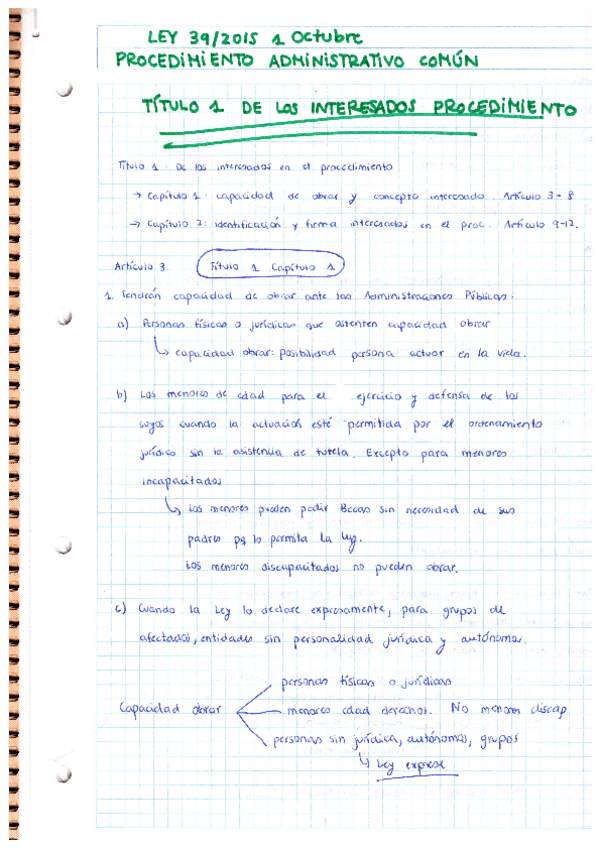 LEY 39/2015 1 Octubre
PROCEDIMIENTO ADMINISTRATIVO COMÚN
TÍTULO 1 DE LOS INTERESADOS PROCEDIMIENTO
Título 1. De los interesados en el procedimiento
→ Capítulo 1: capacidad de obrar y concepto interesado. Artículo 3-8
→ Capítulo 2: identificación y firma interesados en el proc. Artículo 9-12.
Artículo 3. Título 1 Capítulo 1
1. Tendrán capacidad de obrar ante las Administraciones Públicas:
a) Personas físicas o jurídicas que ostenten capacidad obrar
↳ capacidad obrar: posibilidad persona actuar en la vida.
b) Los menores de edad para el ejercicio y defensa de los
suyos cuando la actuación esté permitida por el ordenamiento
jurídico sin la asistencia de tutela. Excepto para menores
incapacitados
↳ Los menores pueden pedir Becas sin necesidad de sus
padres pq lo permita la ley.
Los menores discapacitados no pueden obrar.
c) Cuando la Ley lo declare expresamente, para grupos de
afectados, entidades sin personalidad jurídica y autónomos.
personas físicas o jurídicas
Capacidad obrar menores edad derechos. No menores discap
personas sin jurídica, autónomos, grupos
↳ Ley exprese